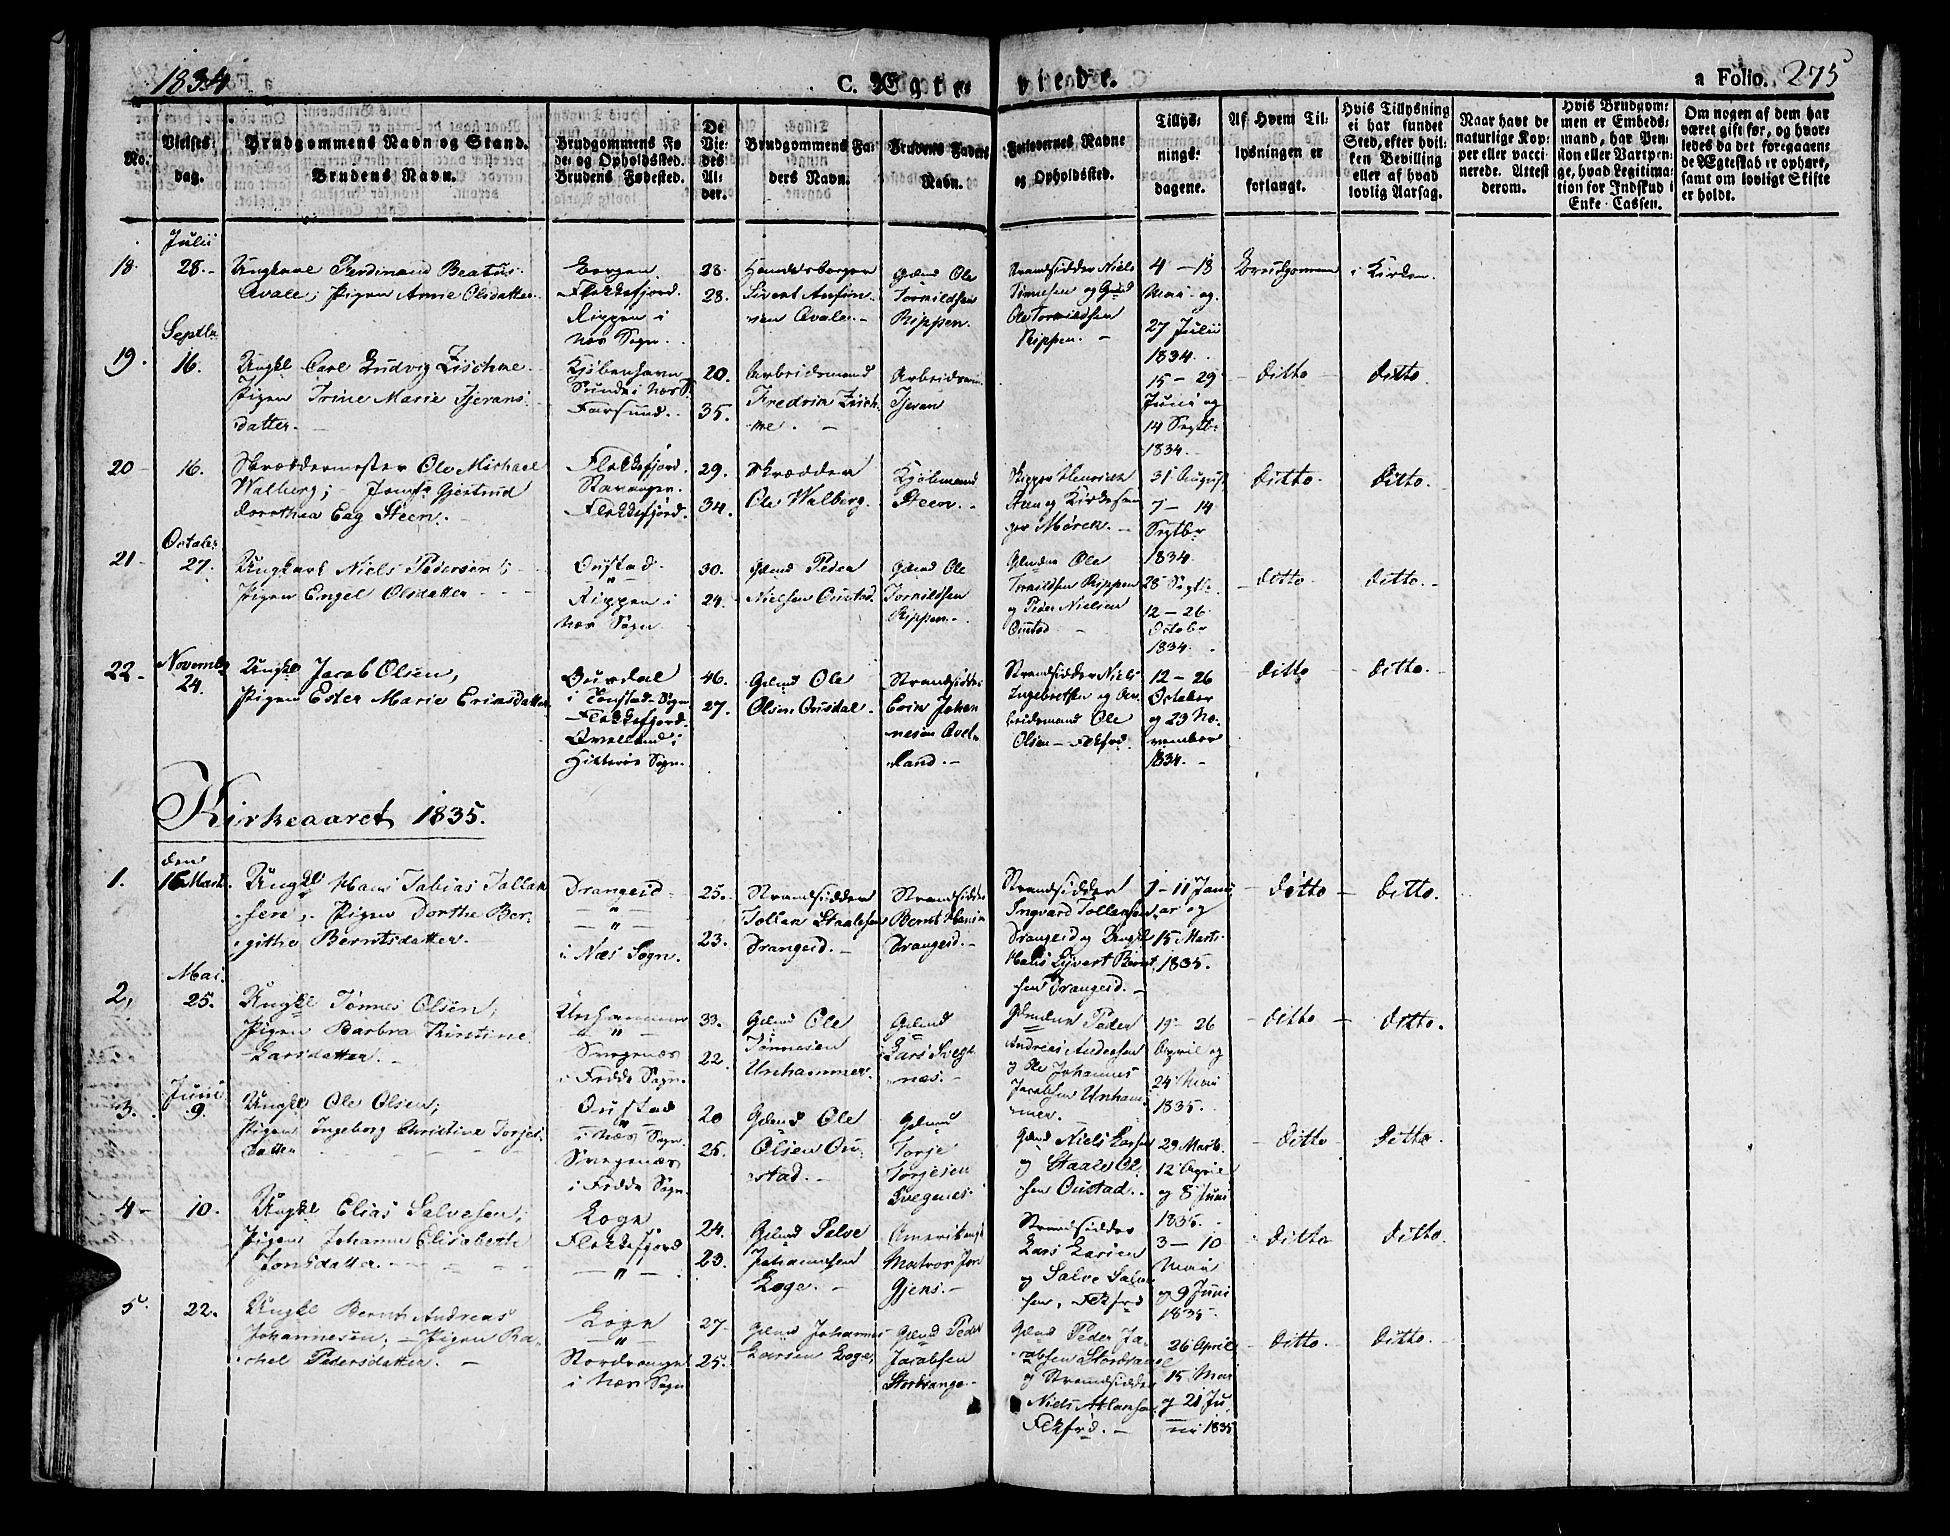 1834
C. Ægte-
viede.
a Folio. 275
No.
Vielses-
dag.
Brudgommens Navn og Stand.
Brudens Navn.
Brudgommens Fø-
de- og Opholdssted.
Brudens Fødested.
De
Vie-
des
Al-
der.
Brudgommens Fa-
ders Navn.
Brudens Faders
Navn.
Forlovernes Navne
og Opholdssted.
Tillys-
nings-
dagene.
Af Hvem Til-
lysningen er
forlangt.
Hvis Tillysning
ei har fundet
Sted, efter hvil-
ken Bevilling
eller af hvad
lovlig Aarsag.
Naar havt de
naturlige Kop-
per eller vacci-
nerede. Attest
derom.
Hvis Brudgom-
men er Embeds-
mand, har Pen-
sion eller Vartpen-
ge, hvad Legitima-
tion for Indskud i
Enke-Cassen.
Om nogen af dem har
været gift før, og hvor-
ledes da det foregaaen-
de Ægteskab er ophørt,
samt om lovligt Skifte
er holdt.
18.
Julii
28.
Ungkarl Ferdinand Beatus
Avale; Pigen Anne Olsdatter
Flekkefjord.
Rippen i
Næs Sogn.
28.
28.
Handelsborger
Sivert
sen Avale.
Gaard Ole
Tornildsen
Rippen.
Strandsidder Niels
Tønnesen og Gaard
Ole Tornildsen
Rippen.
4 — 18
Mai og
27 Julii
1834.
Brudgommen
i Kirken.
19.
Septbr
16.
Ungkl Carl Ludvig Zischne
Pigen Trine Marie Tjerans
datter.
Kjøbenhavn
Sunde i Næs S.
Farsund.
20.
35.
Arbeidsmand
Fredrik Zisch
ne.
Arbeidsm
Tjeran
15 — 29
Juni og
14 Septbr
1834.
ditto
ditto
20
16.
Skræddermester Ole Michael
Walberg; Jomfr Gjertrud
Dorothea Eeg Steen.
Flekkefjord.
Stavanger.
Flekkefjord.
29.
34.
Skrædder
Ole Walberg.
Kjøbmand
Steen.
Skipper Henrich
Steen og Kirkesan
ger Mørch.
31 August
7 — 14
Septbr
1834
ditto.
ditto.
21
October
27.
Ungkarl Niels Pedersen;
Pigen Engel Olsdatter
Oustad.
"
Rippen i
Næs Sogn.
30.
24.
Gaard Peder
Nielsen Oustad.
Gaard Ole
Tornildsen
Rippen.
Ole
Tornildsen Rippen
og Peder Nielsen
Oustad
28 Septbr
12 — 26
October
1834.
ditto.
ditto.
22
Novembr
24.
Ungkl Jacob Olsen,
Pigen Ester Marie Ericsdatter
Ousdal
i Tonstad Sogn
Flekkefjord.
i
Hitterøe Sogn.
46.
27.
Gaard Ole
Olsen Ousdal.
Strandsidder
Eric Johan
nesen
land.
Strandsidder Niels
Ingebretsen og Ar
beidsmand Ole
Olsen — Fekfrd.
12 — 26
October
og 23 No-
vember
1834.
ditto
ditto.
Kirkeaaret 1835.
1.
den
16 Marts.
Ungkl Hans Tobias Tollak
sen; Pigen Dorthe Ber-
githe Berntsdatter.
Drangeid
"
"
i Næs Sogn.
25.
23.
Strandsidder
Tollak Staalesen
Drangeid.
Strandsidder
Bernt Hansen
Drangeid.
Strandsidder
Ingvard Tollaksen
Drangeid og Ungkl
Hans Sivert Bernt
sen Drangeid.
1 — 11 Janu
ar og
15 Marts
1835.
ditto
ditto.
2.
Mai.
25.
Ungkl Tønnes Olsen;
Pigen Barbra Kirstine
Larsdatter.
Unhammer
"
Svegenæs
i Fædde Sogn.
33.
22.
Gaard Ole
Tønnesen
Unhammer.
Gaard
Lars Sveg
næs.
Peder
Andreas Andersen
og Ole Johannes
Jacobsen Unham
mer.
19 — 26
April og
24 Mai
1835.
ditto
ditto.
3.
Juni
9.
Ungkl Ole Olsen;
Pigen Ingeborg Christine Torjes
datter
Oustad
"
i Næs Sogn.
Svegenæs
i Fædde Sogn.
20
25.
Gaard Ole
Olsen Ou-
stad.
Gaard
Torje
Torjesen
Svegenes.
Gaard Niels Larsen
og Staale Ol
sen Oustad.
29 Marts
12 April
og 8 Juni
1835.
ditto
ditto.
4
10.
Ungkl Elias Salvesen;
Pigen Johanne Elisabeth
Jonsdatter
Loge
Flekkefjord
"
24.
23.
Gaard Salve
Johannesen
Loge.
Matros Jon
Gjens.
Strandsidder
Lars Larsen
og Salve Salve
sen, Fekfrd
3 — 10
Mai
og 9 Juni
1835.
ditto
ditto.
5.
22.
Ungkl Bernt Andreas
Johannesen; Pigen Ra-
chel Pedersdatter.
Loge
"
Stordrange
i Næs Sogn
27
25.
Gaard Johannes
Larsen Loge,
Gaard Peder
Jacobsen
Stordrange.
Gaard Peder Ja-
cobsen Stordrange
og Strandsidder
Niels
Fekfrd.
26 April
15 Mai
og 21 Ju-
ni 1835
ditto.
ditto.